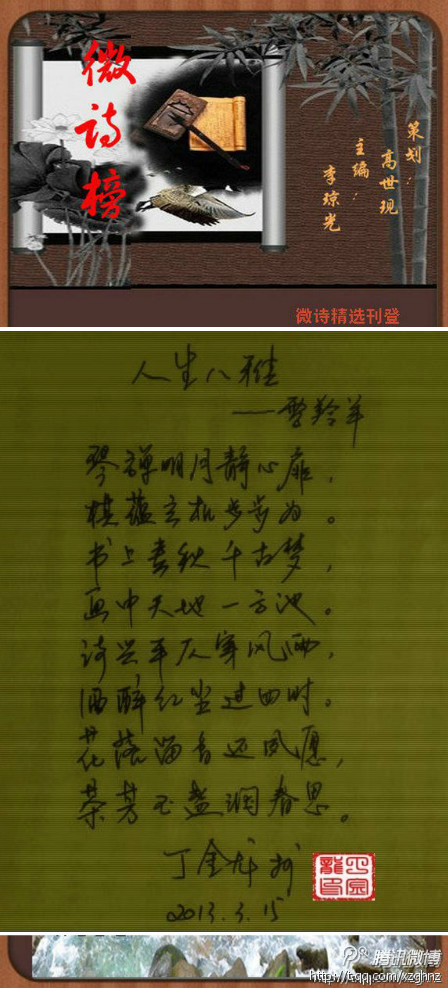 微诗榜
策划：
高世现
主编：
李琼光
微诗精选刊登
人生八雅
——羚羊
琴禅明月静心扉，
棋蕴玄机步步为。
书上春秋千古梦，
画中天地一方池。
诗兴平仄风雨，
酒醉红尘过四时。
花落留香还夙愿，
茶芳玉盏润春思。
丁金龙
2013.3.15
腾讯微博
http://t.qq.com/xzghnz